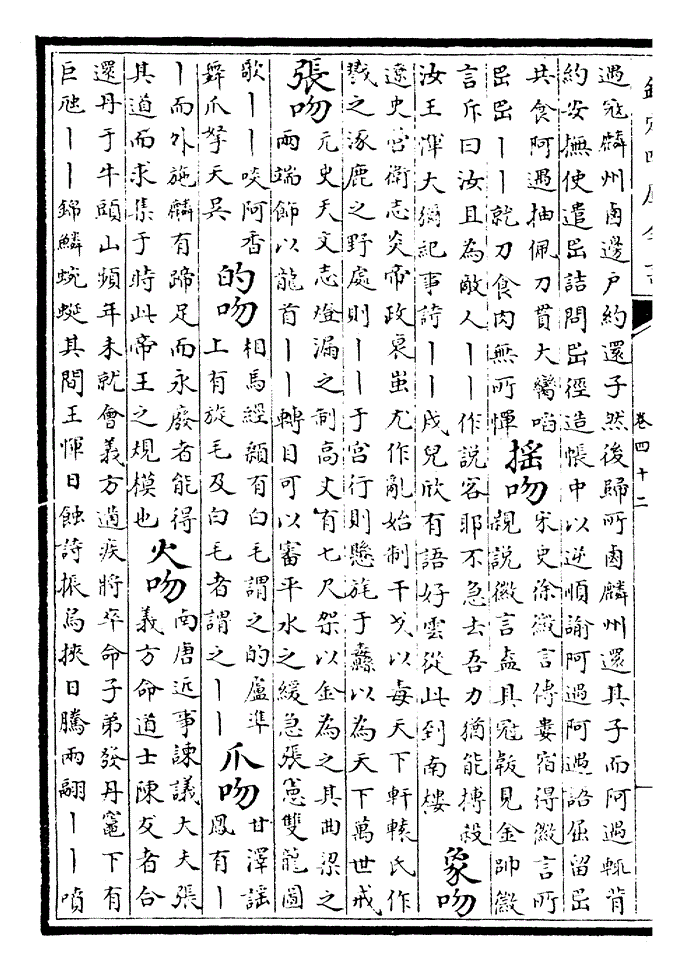 欽定四庫全書
卷四十二
過寇麟州鹵邊户約還子然後歸所鹵麟州還其子而阿過輒背
約安撫使遣嵒詰問嵒徑造帳中以逆順諭阿過阿過語屈留嵒
共食阿過抽佩刀貫大臠啗
嵒嵒丨丨就刀食肉無所憚
搖吻
宋史徐徽言傳婁宿得徽言所
親説徽言盍具冠韍見金帥徽
言斥曰汝且為敵人丨丨作說客耶不急去吾力猶能搏殺
汝王惲大獮記事詩丨丨戍兒欣有語好雲從此到南樓
象吻
遼史營衛志炎帝政衰蚩尤作亂始制干戈以毒天下軒轅氏作
戮之涿鹿之野處則丨丨于宫行則懸旄于纛以為天下萬世戒
張吻
元史天文志燈漏之制高丈有七尺架以金為之其曲梁之
兩端飾以龍首丨丨轉目可以審平水之緩急張憲雙龍圖
歌丨丨啖阿香
舞爪拏天吳
的吻
相馬經顙有白毛謂之的盧準
上有旋毛及白毛者謂之丨丨
爪吻
甘澤謡
鳳有丨
丨而外施麟有蹄足而永廢者能得
其道而求集于時此帝王之規模也
火吻
南唐近事諫議大夫張
義方命道士陳友者合
還丹于牛頭山頻年未就會義方遘疾將卒命子弟發丹竈下有
巨虺丨丨錦鱗蜿蜒其間王惲日蝕詩振烏挾日騰兩翮丨丨噴